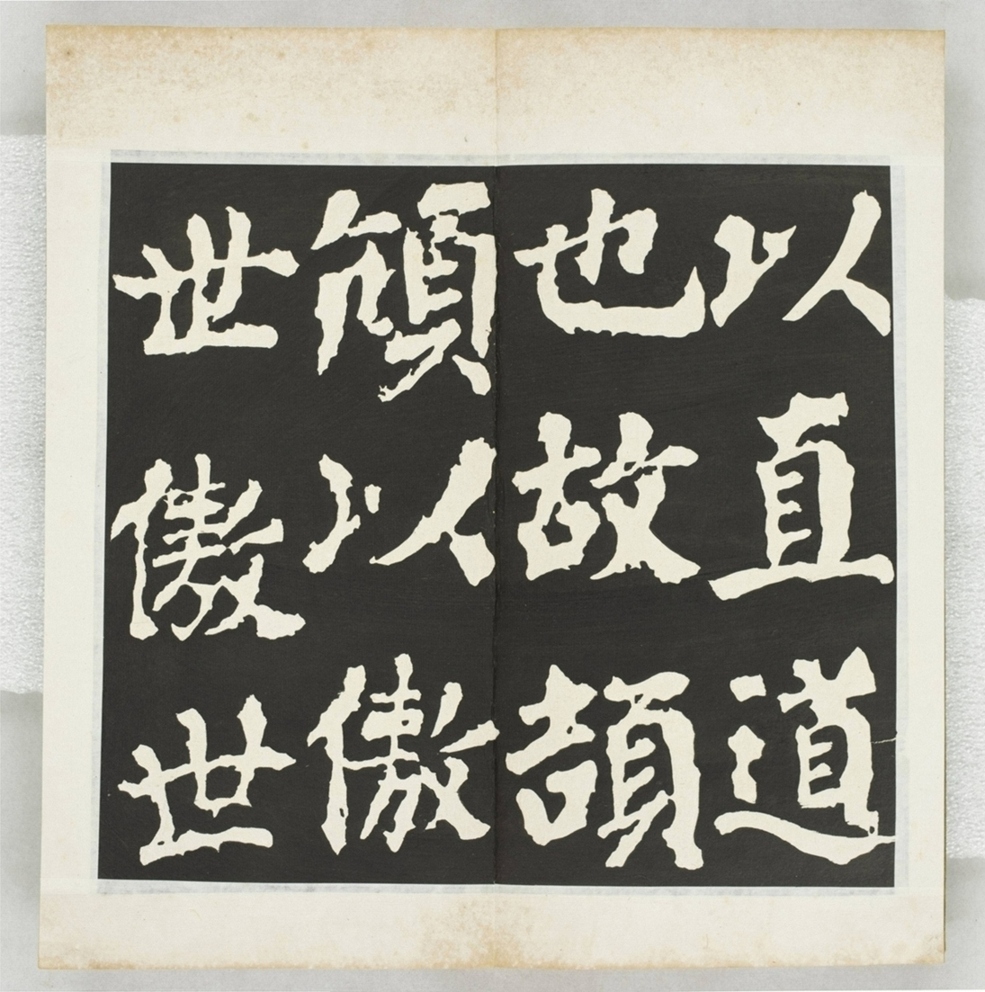 以直道
也故頡
頏以傲
世傲世